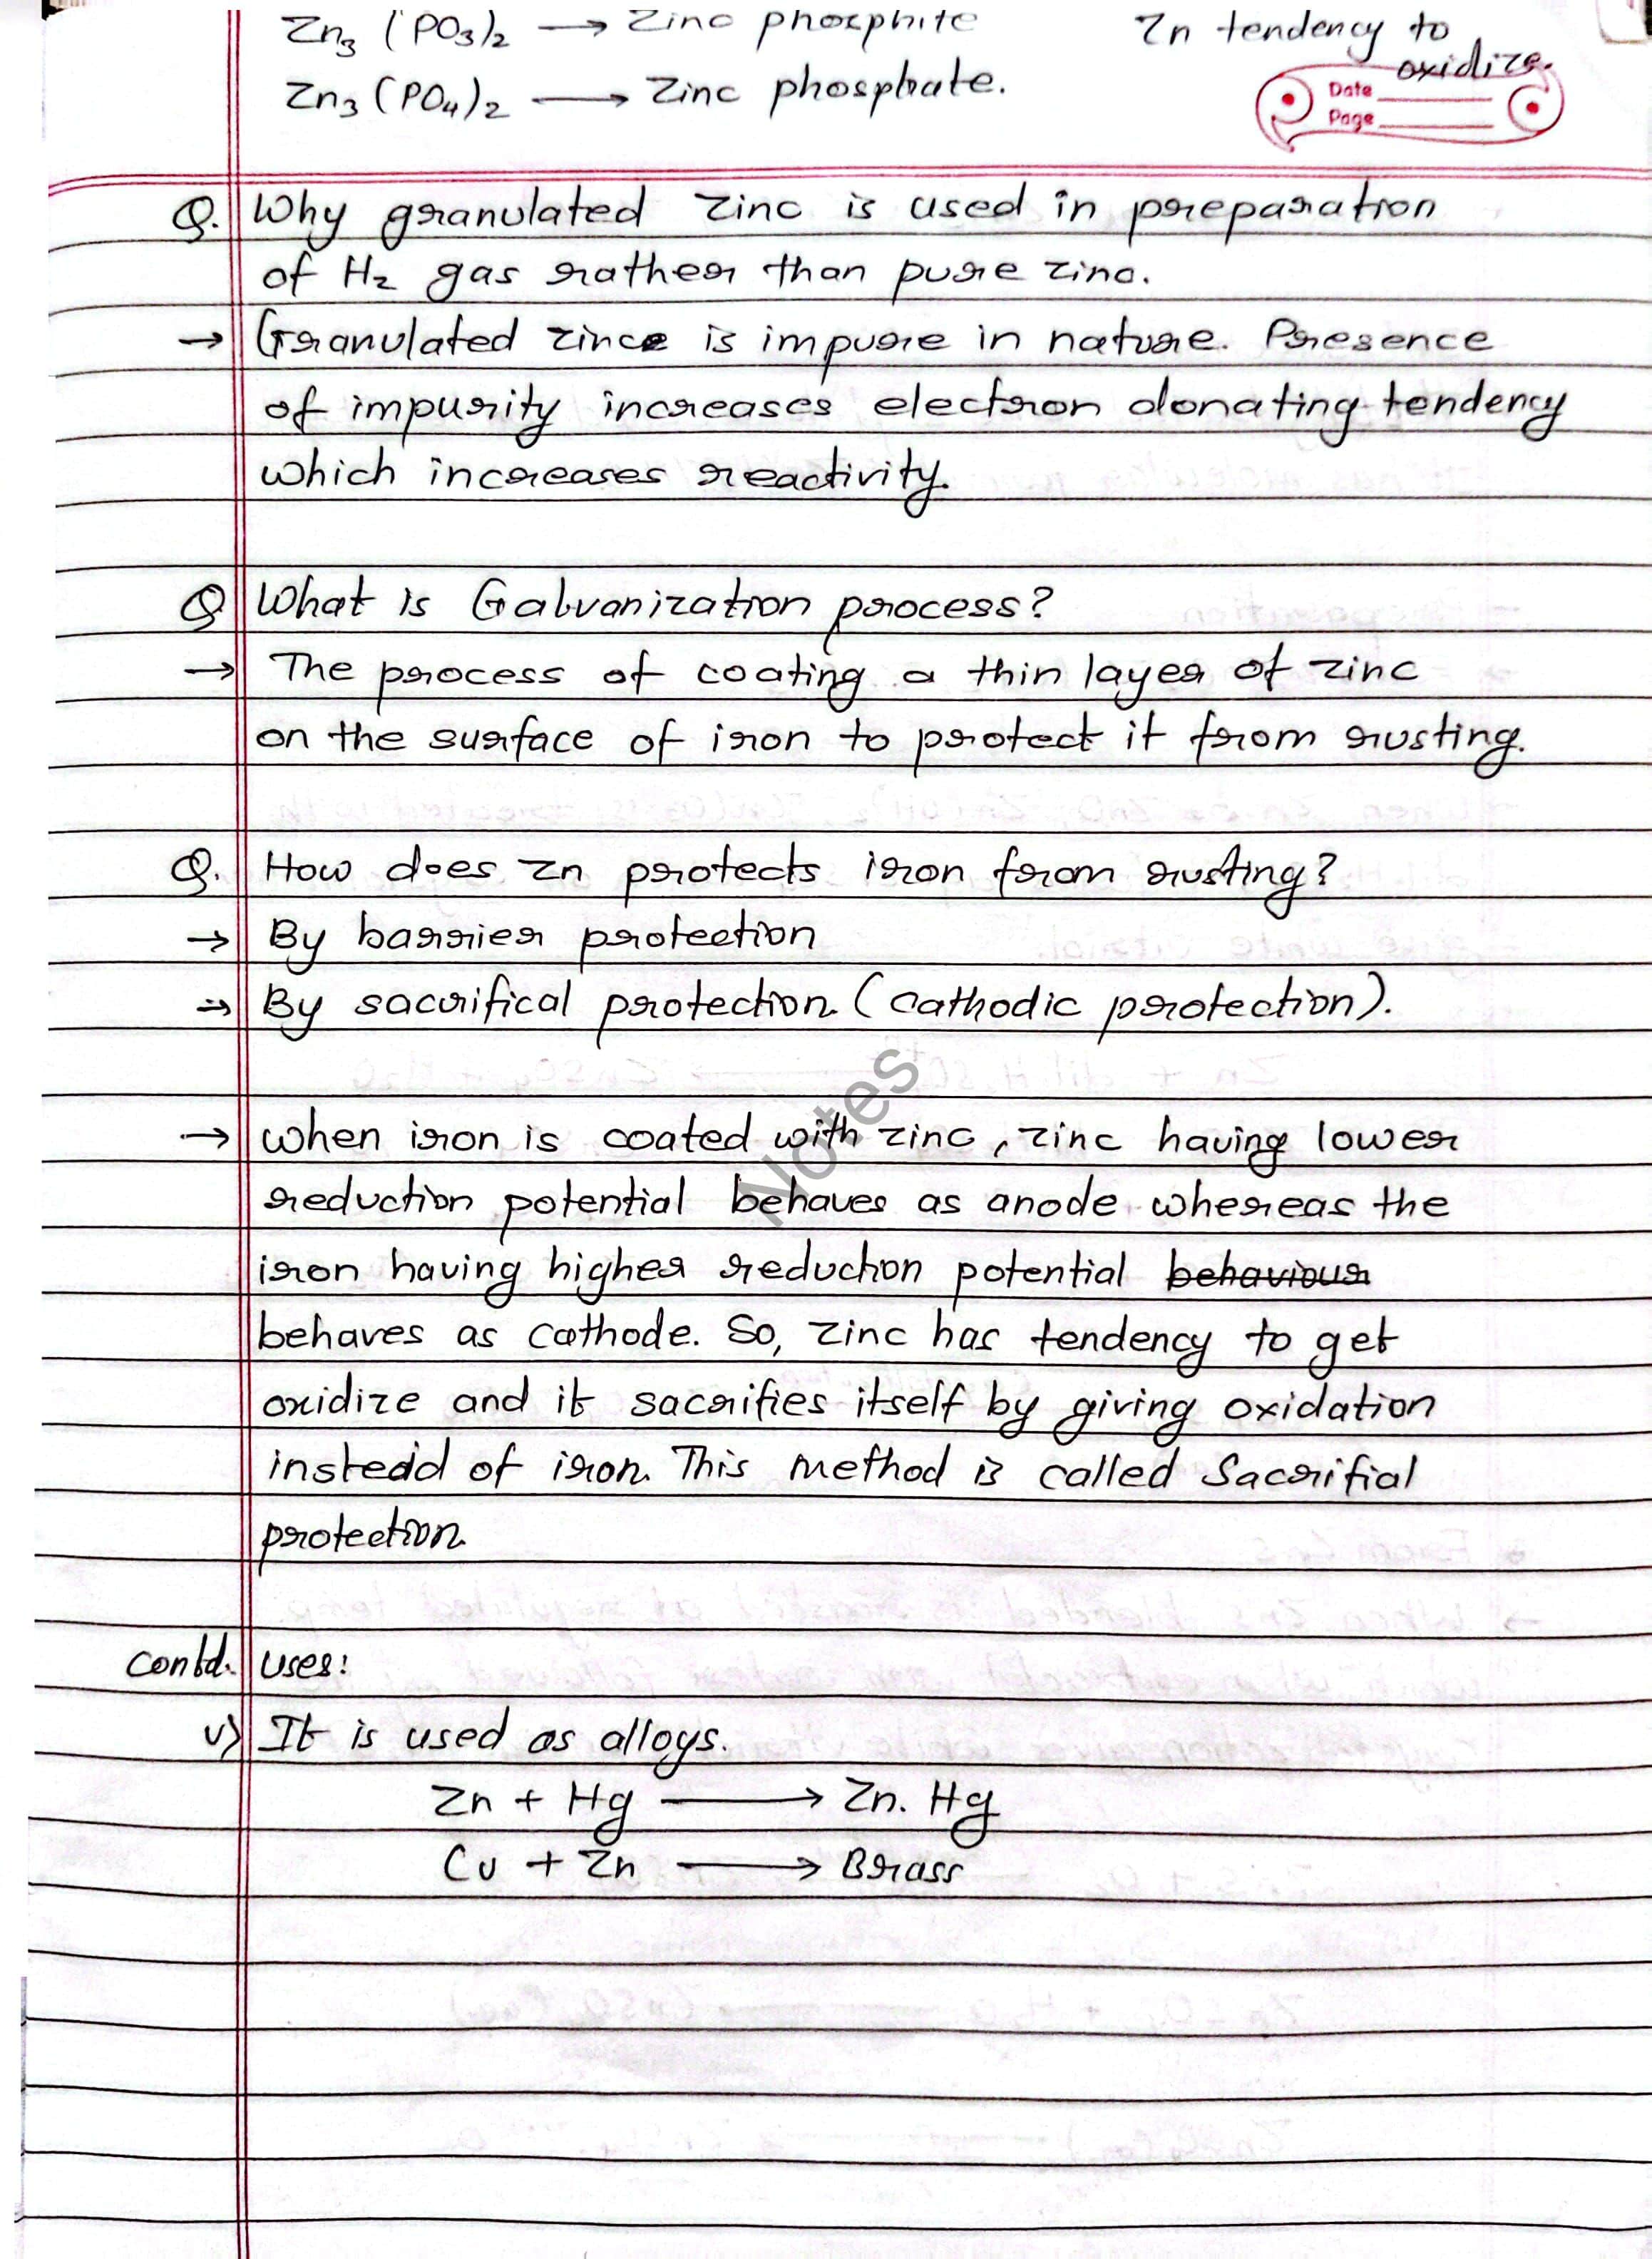 Zn3 (PO3)2 → Zinc phosphite
Zn tendency to
oxidize.
Zn3 (PO4)2 → Zinc phosphate.
Date
Page
Q. Why granulated zinc is used in preparation
of H2 gas rather than pure zinc.
→ Granulated zince is impure in nature. Presence
of impurity increases electron donating tendency
which increases reactivity.
Q What is Galvanization process?
→ The process of coating a thin layer of zinc
on the surface of iron to protect it from rusting.
Q. How does Zn protects iron from rusting?
→ By barrier protection
→ By sacrifical protection (cathodic protection).
Notes
→ when iron is coated with zinc, zinc having lower
reduction potential behaves as anode whereas the
iron having higher reduction potential behaviour
behaves as cathode. So, zinc has tendency to get
oxidize and it sacrifies itself by giving oxidation
instead of iron. This method is called Sacrifial
protection.
contd. uses:
v) It is used as alloys.
Zn + Hg → Zn. Hg
Cu + Zn → Brass